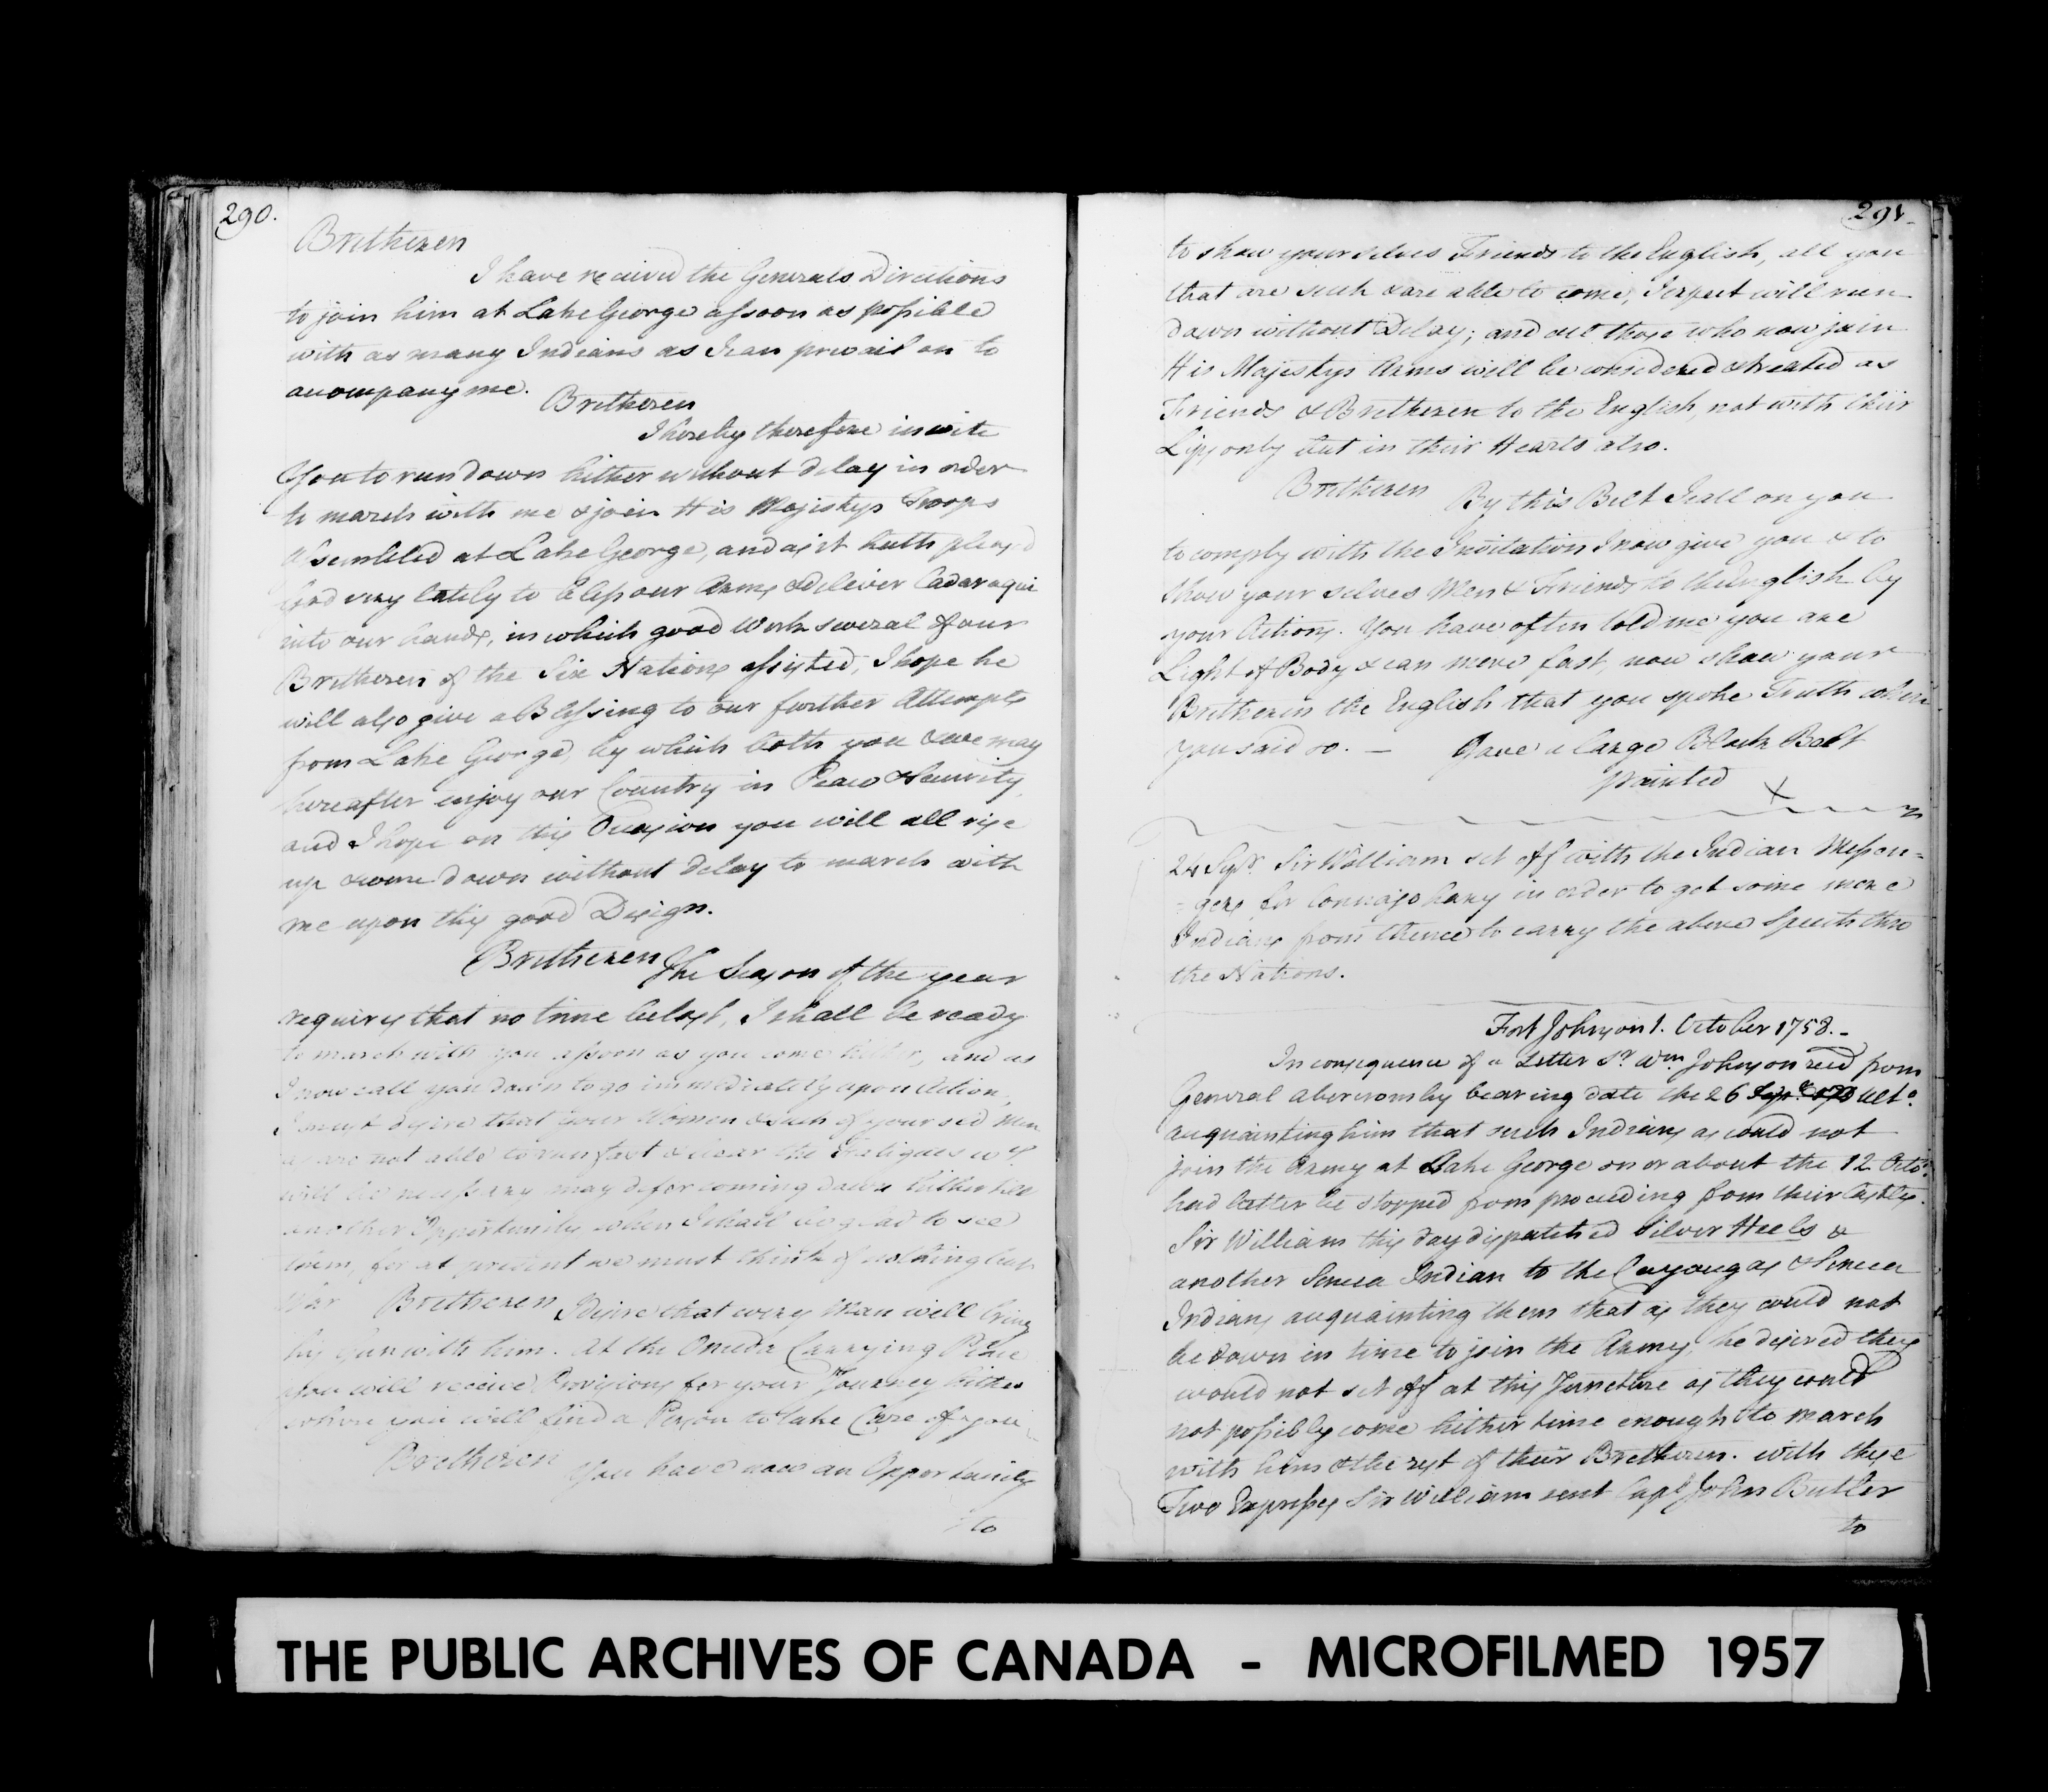 290.
Bretheren
I have receivd the Generals Directions
to join him at Lake George assoon as possible
with as many Indians as I can prevail on to
accompany me.
Bretheren
I hereby therefore invite
You to run down hither without delay in order
to march with me & join His Majestys Troops
assembled at Lake George, and as it hath pleased
God very lately to bless our Arms & deliver Cadaraqui
into our hands, in which good Work several of our
Bretheren of the Six Nations assisted, I hope he
will also give a Blessing to our further Attempts
from Lake George, by which both you & we may
hereafter enjoy our Country in Peace & Security,
and I hope on this Occasion you will all rise
up & come down without delay to march with
me upon this good Design.
Bretheren
The Season of the year
requires that no time be lost, I shall be ready
to march with you assoon as you come hither, and as
I now call you down to go immediately upon Action,
I must desire that your Women & such of your old Men
as are not able to run fast & bear the Fatigues wch.
will be necessary may defer coming down hither till
another Opportunity when I shall be glad to see
them, for at present we must think of nothing but
War
Bretheren
I desire that every Man will bring
his Gun with him. At the Oneida Carrying Place
You will receive Provisions for your Journey hither
where you will find a Person to take Care of you
Bretheren
You have now an Opportunity
to
291.
to shew your selves Friends to the English, all you
that are such & are able to come, I expect will run
down without Delay; and all those who now join
His Majestys Arms will be considered & treated as
Friends & Bretheren to the English, not with their
Lips only but in their Hearts also.
Bretheren
By this Belt I call on you
to comply with the Invitation I now give you & to
shew your selves Men & Friends to the English by
your Actions. You have often told me you are
Light of Body & can move fast, now shew your
Bretheren the English that you spoke Truth when
you said so. — Gave a large Black Belt
painted
24 Sepr. Sir William set off with the Indian Messen=
=gers for Connajohary in order to get some more
Indians from thence to carry the above Speech thro
the Nations.
Fort Johnson 1. October 1758.-
In consequence of a Letter Sr. Wm. Johnson recd from
General Abercromby bearing date the 26 Ulto.
acquainting him that such Indians as could not
join the Army at Lake George on or about the 12 Octo:
had better be stopped from proceeding from their Castles.
Sir William this day dispatched Silver Heels &
another Seneca Indian to the Cayougas & Seneca
Indians acquainting them that as they could not
be down in time to join the Army, he desired they
would not set off at this Juncture as they could
not possibly come hither time enough to march
with him & the rest of their Bretheren. with these
Two Expresses Sir William sent Capt John Butler
to
THE PUBLIC ARCHIVES OF CANADA - MICROFILMED 1957